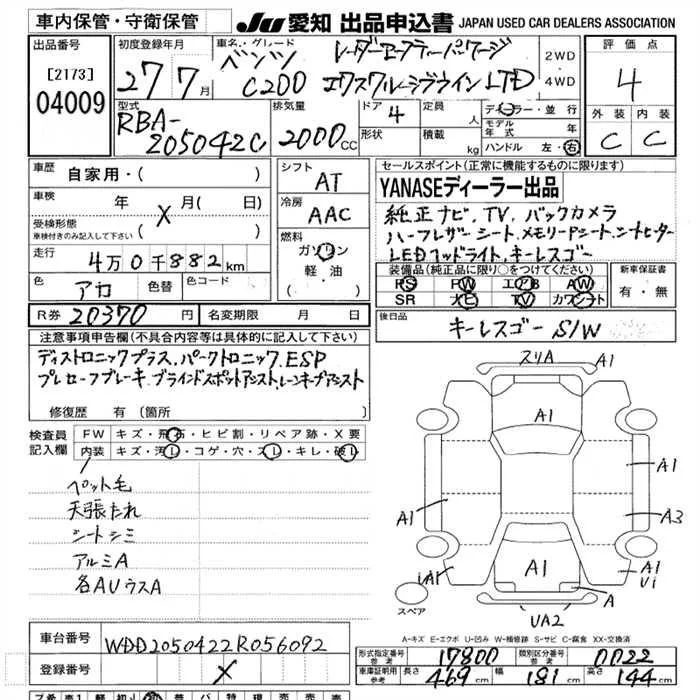 車内保管・守衛保管
JU 愛知 出品申込書 JAPAN USED CAR DEALERS ASSOCIATION
出品番号
[2173]
04009
初度登録年月
27 7月
車名・グレード
ベンツ レーダーセーフティーパッケージ
C200 エクスクルーシブライン LTD
2WD
4WD
評価点
4
外装 内装
C C
型式
RBA-
205042C
排気量
2000cc
ドア
4
形状
定員 人
積載 kg
ディーラー・並行
モデル年式 年
ハンドル 左・右
車歴 自家用・( )
車検 年 月( 日)
X
受検形態
車検付きのみ記入して下さい ( )
走行 4万0千882km
色 アカ 色替 色コード
シフト AT
冷房 AAC
燃料
ガソリン
軽・油
( )
R券 20370円 名変期限 月 日
セールスポイント(正常に機能するものに限ります)
YANASEディーラー出品
純正ナビ、TV、バックカメラ
ハーフレザーシート、メモリーPシート、シートヒーター
LEDヘッドライト、キーレスゴー
装備品(純正品に限り○をつけてください)
PS PW エアB AW
SR ナビ TV カワシート
新車保証書
有・無
後日品
キーレスゴー S/W
注意事項申告欄(不具合内容等は具体的に記入して下さい)
ディストロニックプラス、パークトロニック、ESP
プレセーフブレーキ、ブラインドスポットアシスト、レーンキープアシスト
修復歴 有 〔箇所
検査員
記入欄
FW キズ・飛石・ヒビ割・リペア跡・X要
内装 キズ・汚レ・コゲ・穴・スレ・キレ・破レ
ペット毛
天張たれ
シートシミ
アルミA
各AUウスA
スリA A1
A1
A1
A1 A3
A1
A1 A1
U1
A
UA2
スペア
A-キズ E-エクボ U-凹み W-補修跡 S-サビ C-腐食 XX-交換済
車台番号 WDD2050422R056092
登録番号 X
形式指定番号
参考 17800
類別区分番号
参考 0022
車庫証明用
参考 長さ 469cm 幅 181cm 高さ 144cm